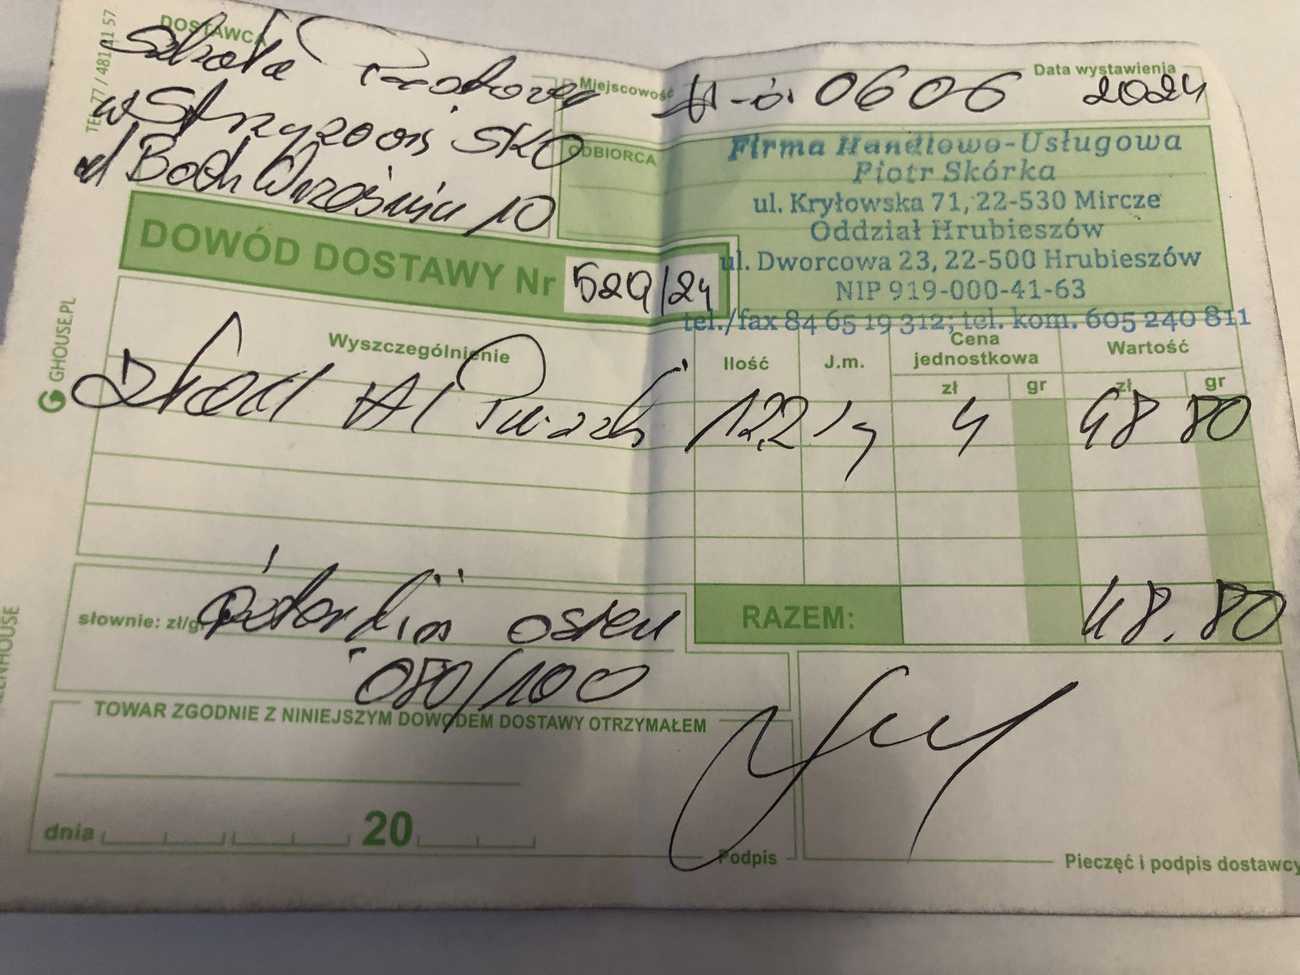 TEL. 77 / 481 41 57
DOSTAWCA
Szkoła Podstawowa
w Strzyżowie SKO
ul Boh Września 10
Miejscowość
H-ów 0606 2024
Data wystawienia
ODBIORCA
Firma Handlowo-Usługowa
Piotr Skórka
ul. Kryłowska 71, 22-530 Mircze
Oddział Hrubieszów
ul. Dworcowa 23, 22-500 Hrubieszów
NIP 919-000-41-63
tel./fax 84 65 19 312; tel. kom. 605 240 811
DOWÓD DOSTAWY Nr 529/24
GHOUSE.PL
Wyszczególnienie
Ilość
J.m.
Cena jednostkowa
Wartość
zł gr zł gr
Al Puszki 12,2 kg 4 48 80
słownie: zł/gr
osiem
080/100
RAZEM: 48.80
TOWAR ZGODNIE Z NINIEJSZYM DOWODEM DOSTAWY OTRZYMAŁEM
dnia 20
Podpis
Pieczęć i podpis dostawcy